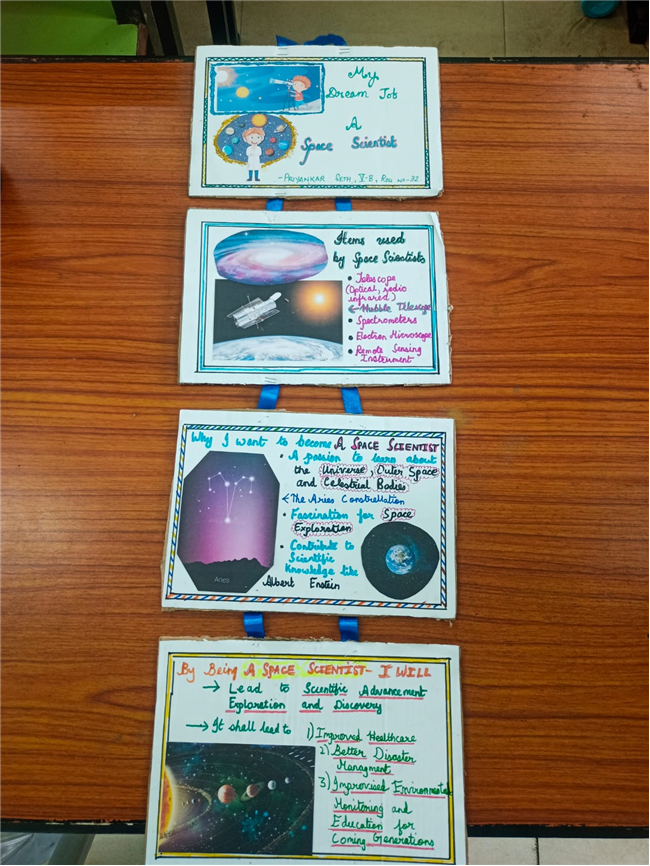 My
Dream Job
A
Space Scientist
- PRIYANKAR SETH, V-B, ROLL NO-32
Items used
by Space Scientists
• Telescope
(Optical, radio
infrared)
← Hubble Telescope
• Spectrometers
• Electron Microscope
• Remote Sensing
Instrument
Why I want to become A SPACE SCIENTIST
• A passion to learn about
the Universe, Outer Space
and Celestrial Bodies
← The Aries Constrellation
• Fascination for Space
Exploration
• Contribute to
Scientific
Knowledge like
Albert Enstein
Aries
By Being A SPACE SCIENTIST - I WILL
→ Lead to Scientific Advancement
Exploration and Discovery
→ It shall lead to 1) Improved Healthcare
2) Better Disaster
Managment
3) Improvised Environmental
Monitoring and
Education for
Coming Generations